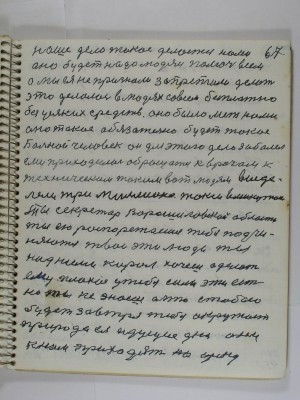 наше дело такое делается нами 67
оно будет надо людям помоч всем
а мы ея не признали запретили делат
это делалос в людях совсем бесплатно
без всяких средств, оно было меж нами
оно такое обязательно будет такое
Бальной человек он для этого дела забалел
ему приходилос обращатся к врачам к
техническим таким вот людям
Ты секретар Ворошиловской области
ты ею роспоряжаешся тебе подчи-
няются твои это люди ты
над ними карол хочеш зделат
ему плохое у тебя сила эта ест
но ты не знаеш а что стобою
будет завтра тебя окружает
природа ея идущие дни они
к нам приходят на